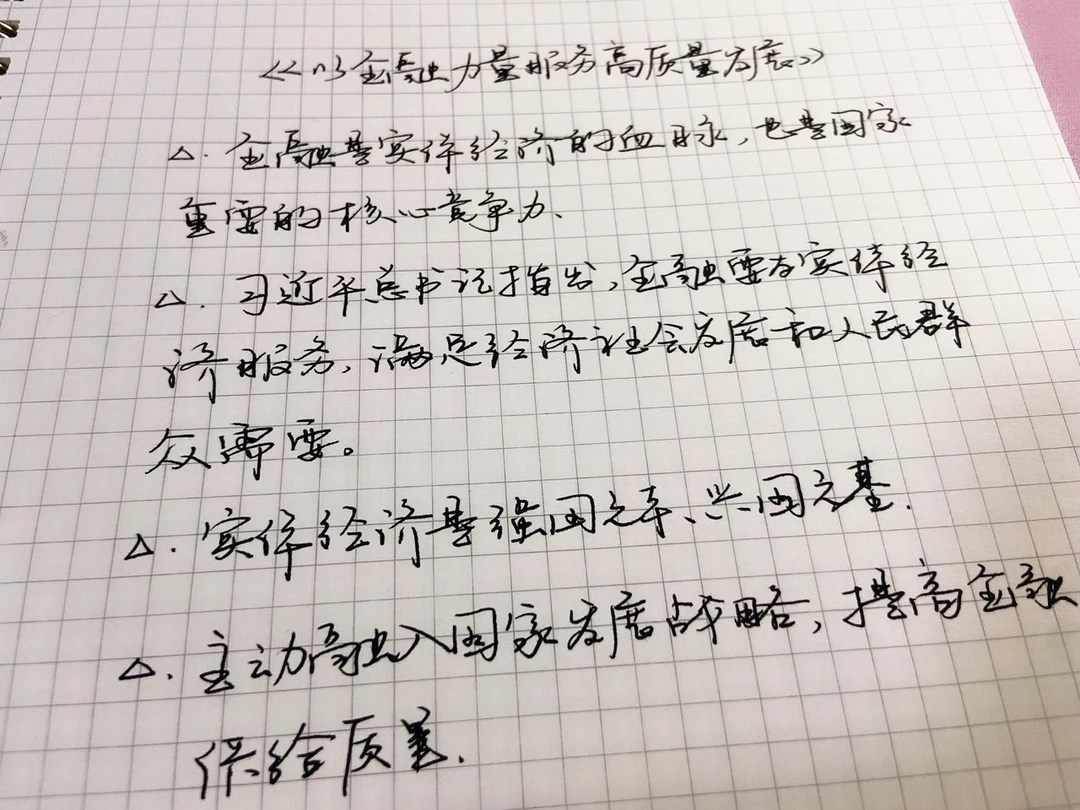 《以金融力量服务高质量发展》
△. 金融是实体经济的血脉，也是国家
重要的核心竞争力.
△. 习近平总书记指出，金融要为实体经
济服务，满足经济社会发展和人民群
众需要。
△. 实体经济是强国之本、兴国之基.
△. 主动融入国家发展战略，提高金融
供给质量.